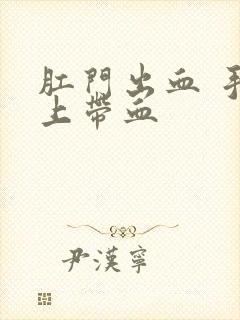 肛門出血 手
上帶血
尹漢寧